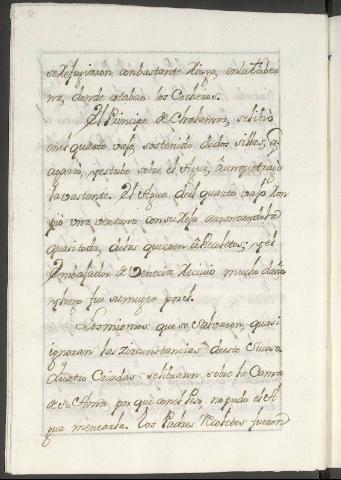 se Refugiaron con bastante Riesgo, en la taber
na, donde estaban los Cocheros.
El Principe de Chalamar, se libró
en el quarto vajo, sostenido de dos sillas, q.
agarró, y estubo sobre el Agua, aunque tragó
la vastante. El Agua del quarto vajo Rom
pió una ventana con su Rexa arrancandola
quasi toda, de las que caen a Recoletos; y el
Embajador de Venecia Recivio mucho daño
y luego fue su muger por el.
Los mismos que se salvaron, quasi
ignoran las Zircunstancias de este Suceso.
Quatro Criadas se libraron sobre la Cama
de su Ama, por que con el Peso, no pudo el A
gua menearla. Los Padres Recoletos fueron